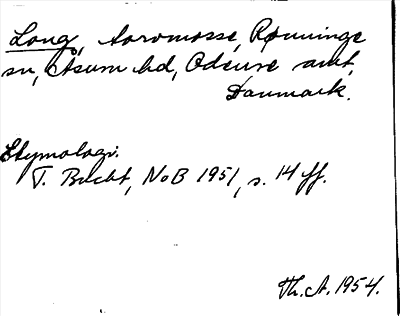 Long, torvmosse, Rønninge
sn, Åsum hd, Odense amt,
Danmark.
Etymologi.
T. Bucht, NoB 1951, s. 14 ff.
Th. A. 1954.